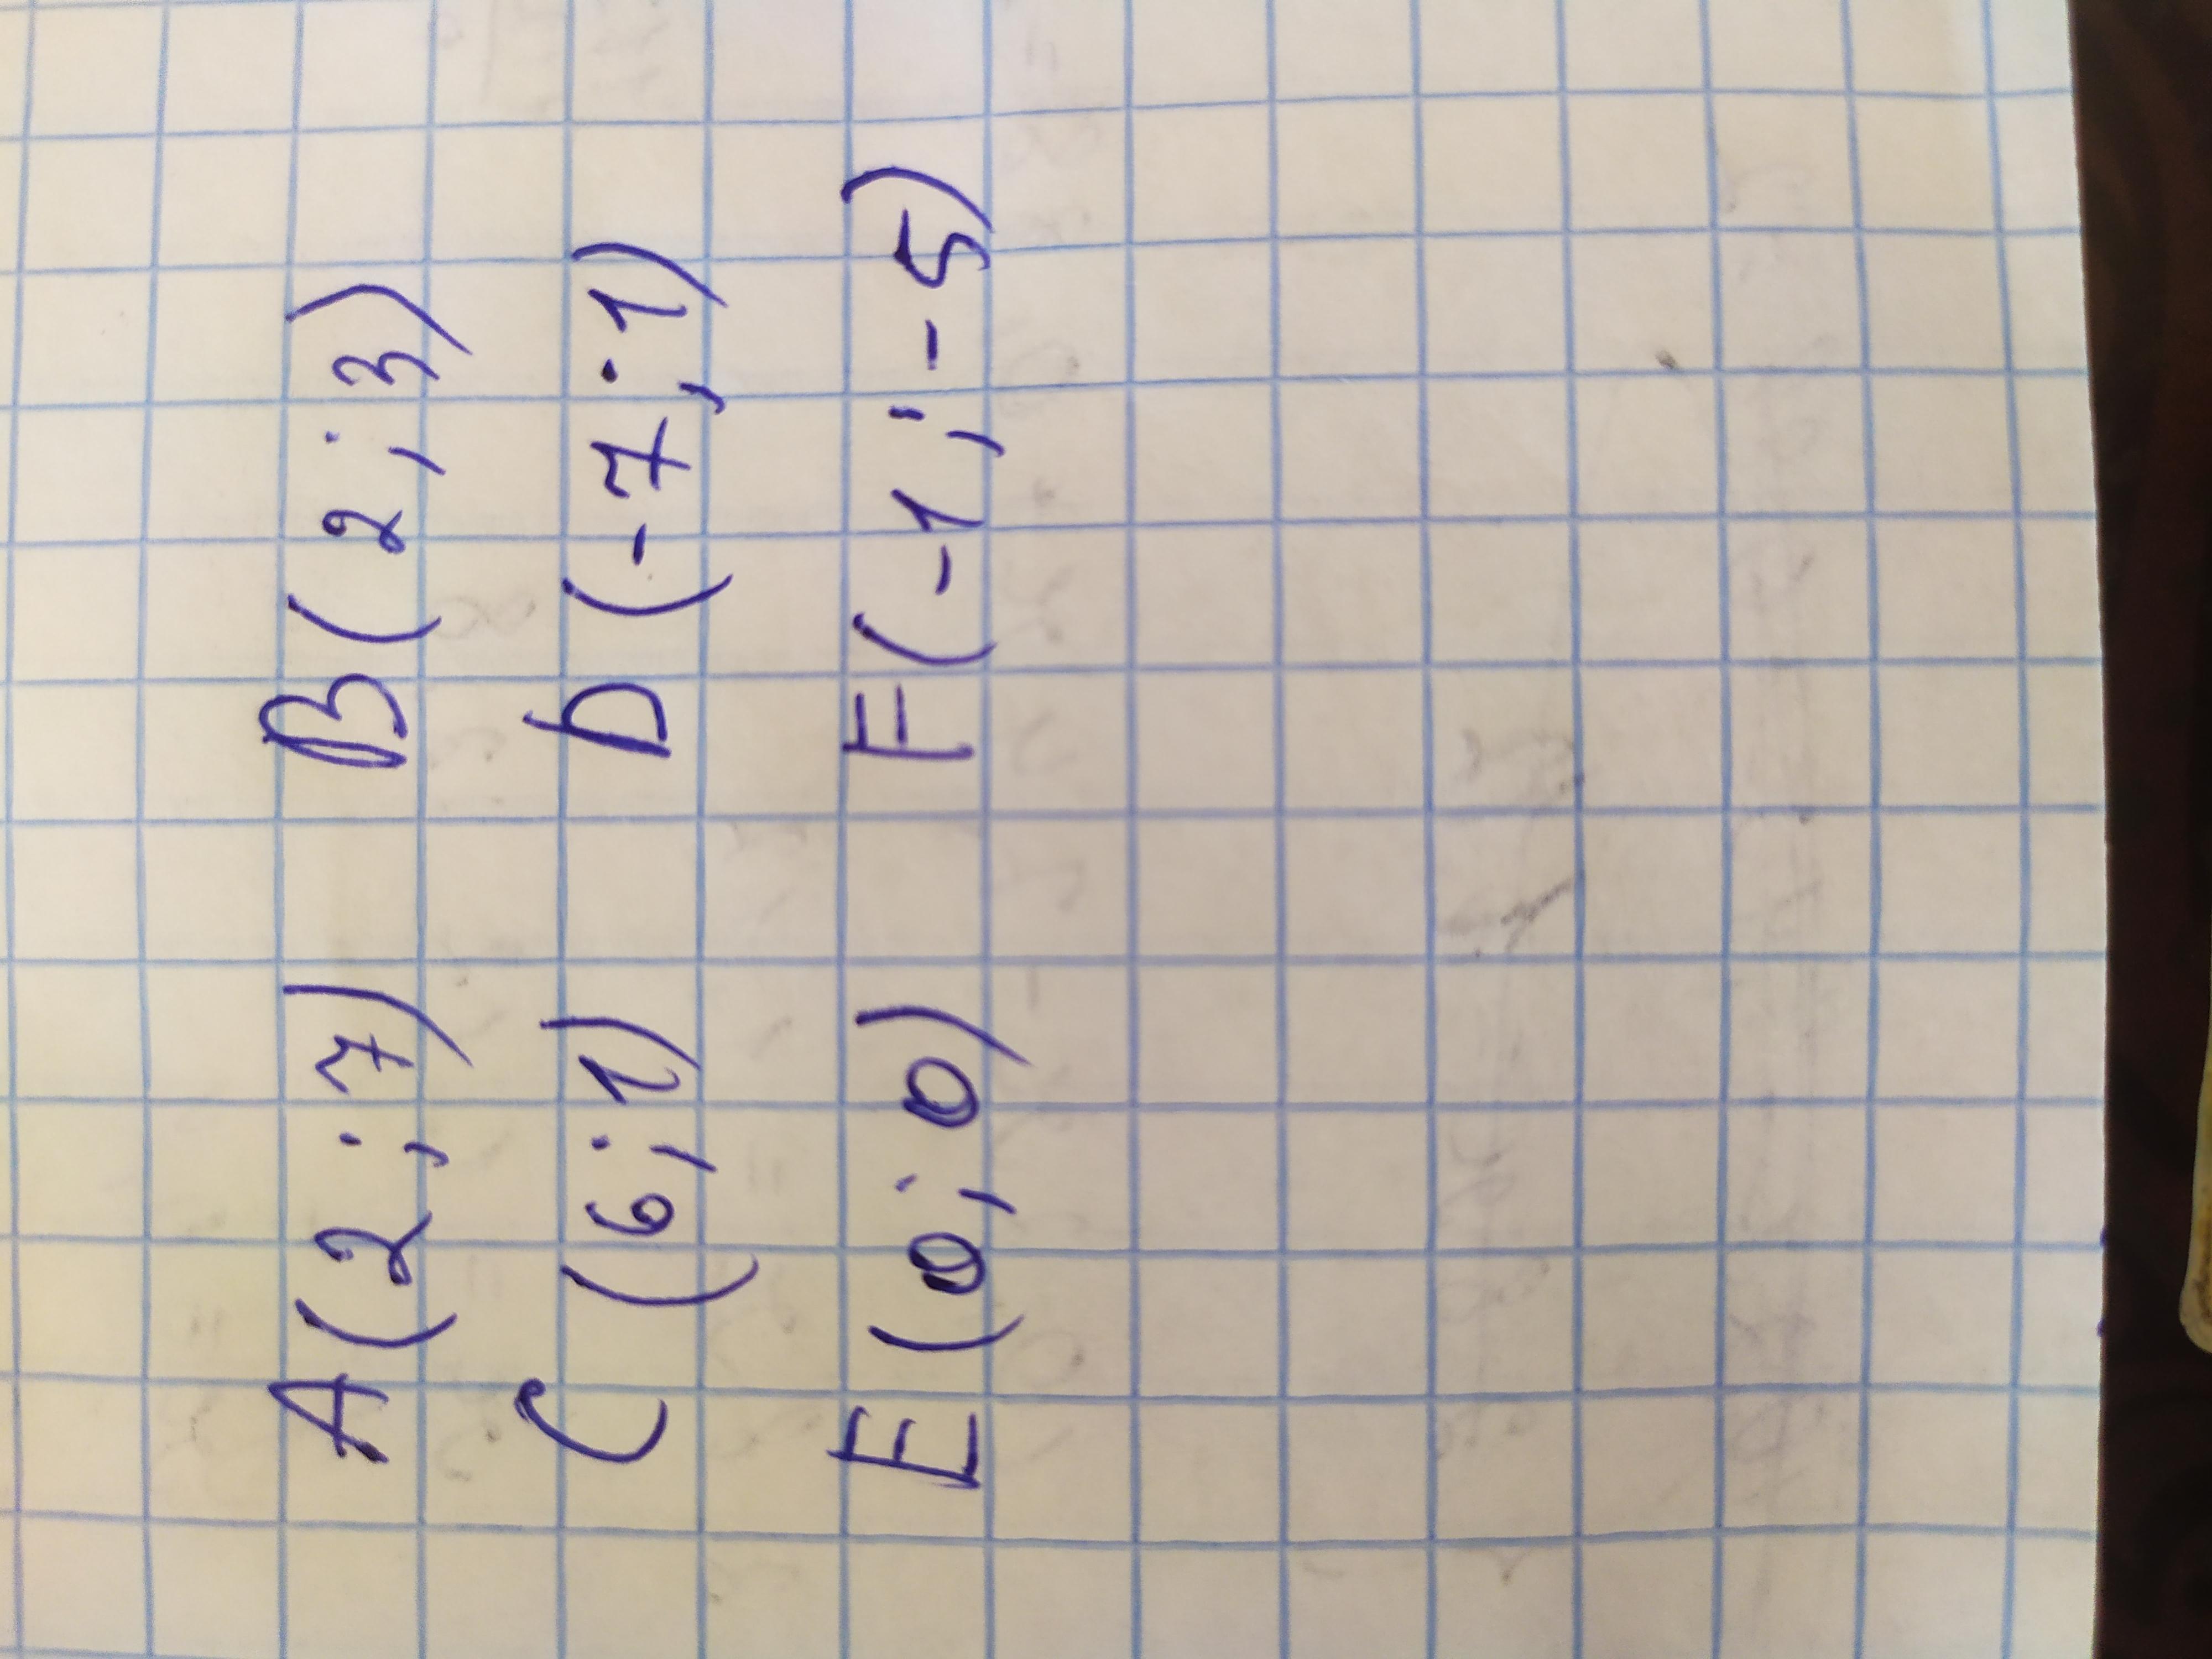 A(2;7) B(2;3)
C(6;1) D(-7;1)
E(0;0) F(-1;-5)